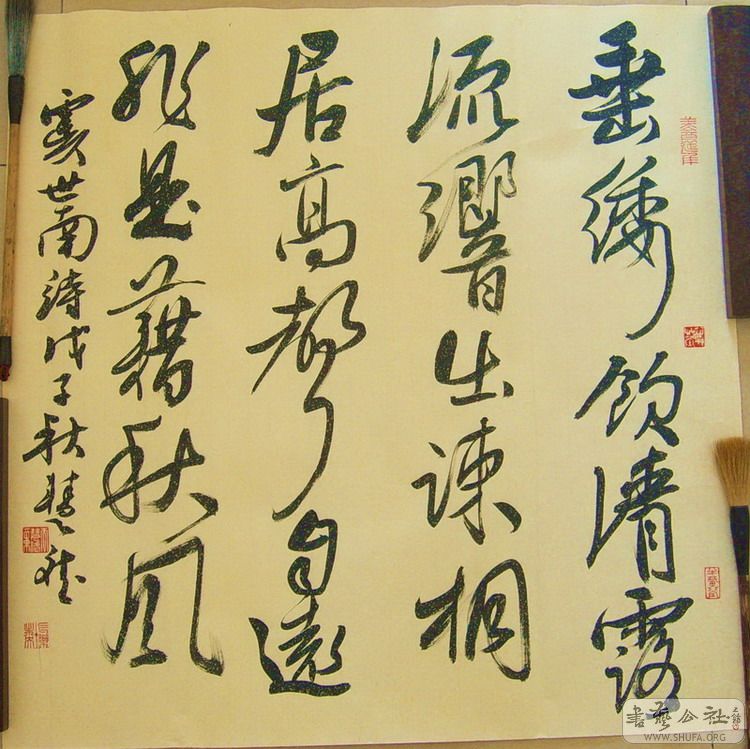 垂緌飲清露
流響出疎桐
居高聲自遠
非是藉秋風
虞世南詩戊子秋
書藝公社
WWW.SHUFA.ORG